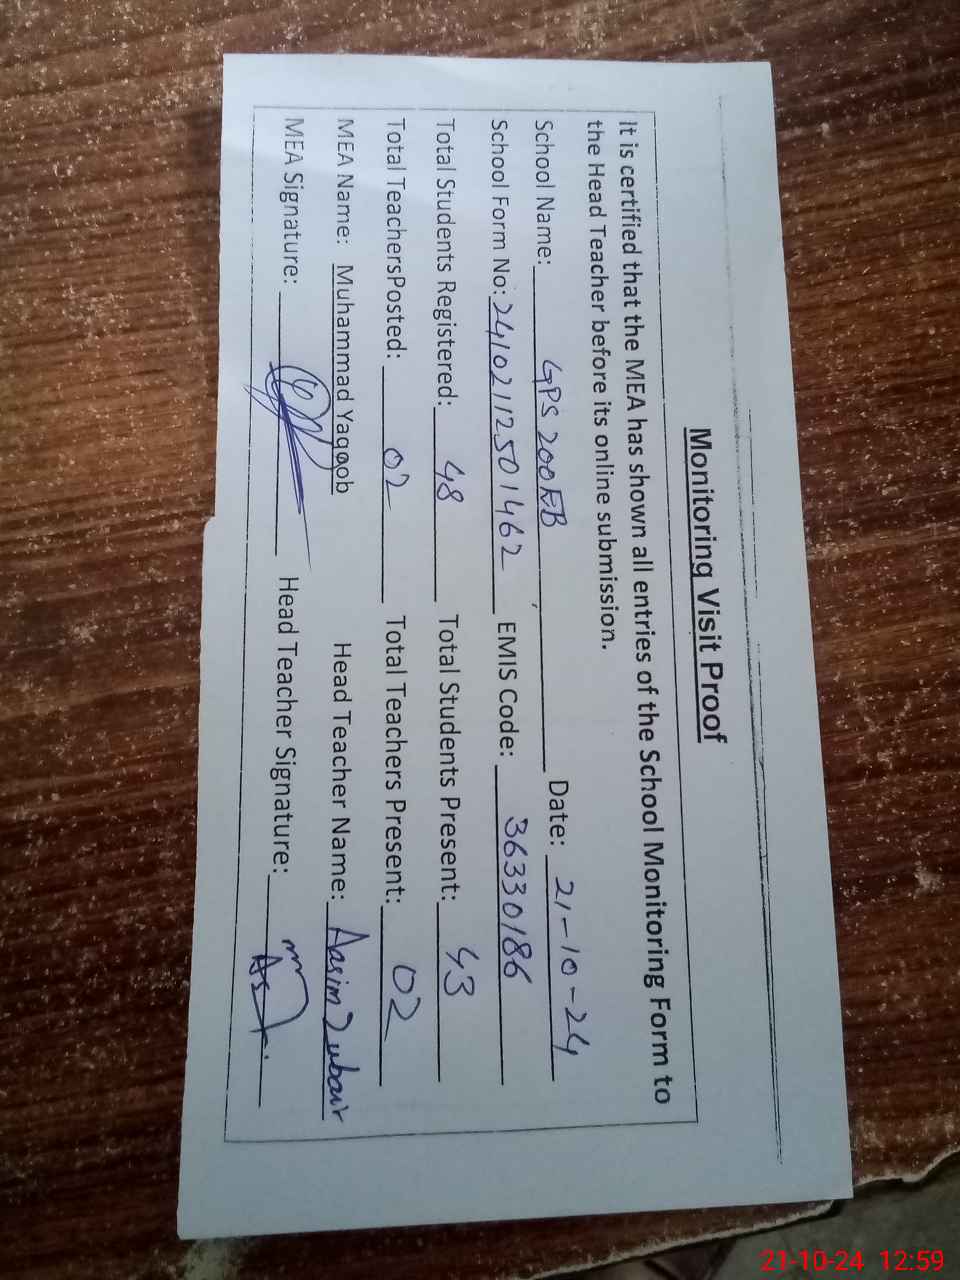 Monitoring Visit Proof
It is certified that the MEA has shown all entries of the School Monitoring Form to
the Head Teacher before its online submission.
School Name: GPS 200EB Date: 21-10-24
School Form No: 24102112501462 EMIS Code: 36330186
Total Students Registered: 48 Total Students Present: 43
Total TeachersPosted: 02 Total Teachers Present: 02
MEA Name: Muhammad Yaqoob Head Teacher Name: Aasim Zubair
MEA Signature: Head Teacher Signature:
21-10-24 12:59